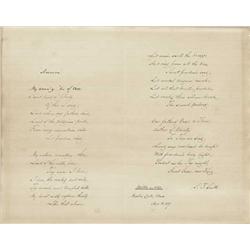 America
My country, 'tis of thee,
Sweet land of liberty,
Of thee I sing;
Land where my fathers died,
Land of the pilgrims' pride,
From every mountain side
Let freedom ring.
My native country, thee,
Land of the noble, free,
Thy name I love;
I love thy rocks and rills,
Thy woods and templed hills;
My heart with rapture thrills
Like that above.
Let music swell the breeze,
And ring from all the trees
Sweet freedom's song;
Let mortal tongues awake,
Let all that breathe partake,
Let rocks their silence break,
The sound prolong.
Our fathers' God, to Thee,
Author of liberty,
To Thee we sing;
Long may our land be bright
With freedom's holy light;
Protect us by thy might,
Great God, our King.
S. F. Smith
Written in 1832.
Newton Centre, Mass.